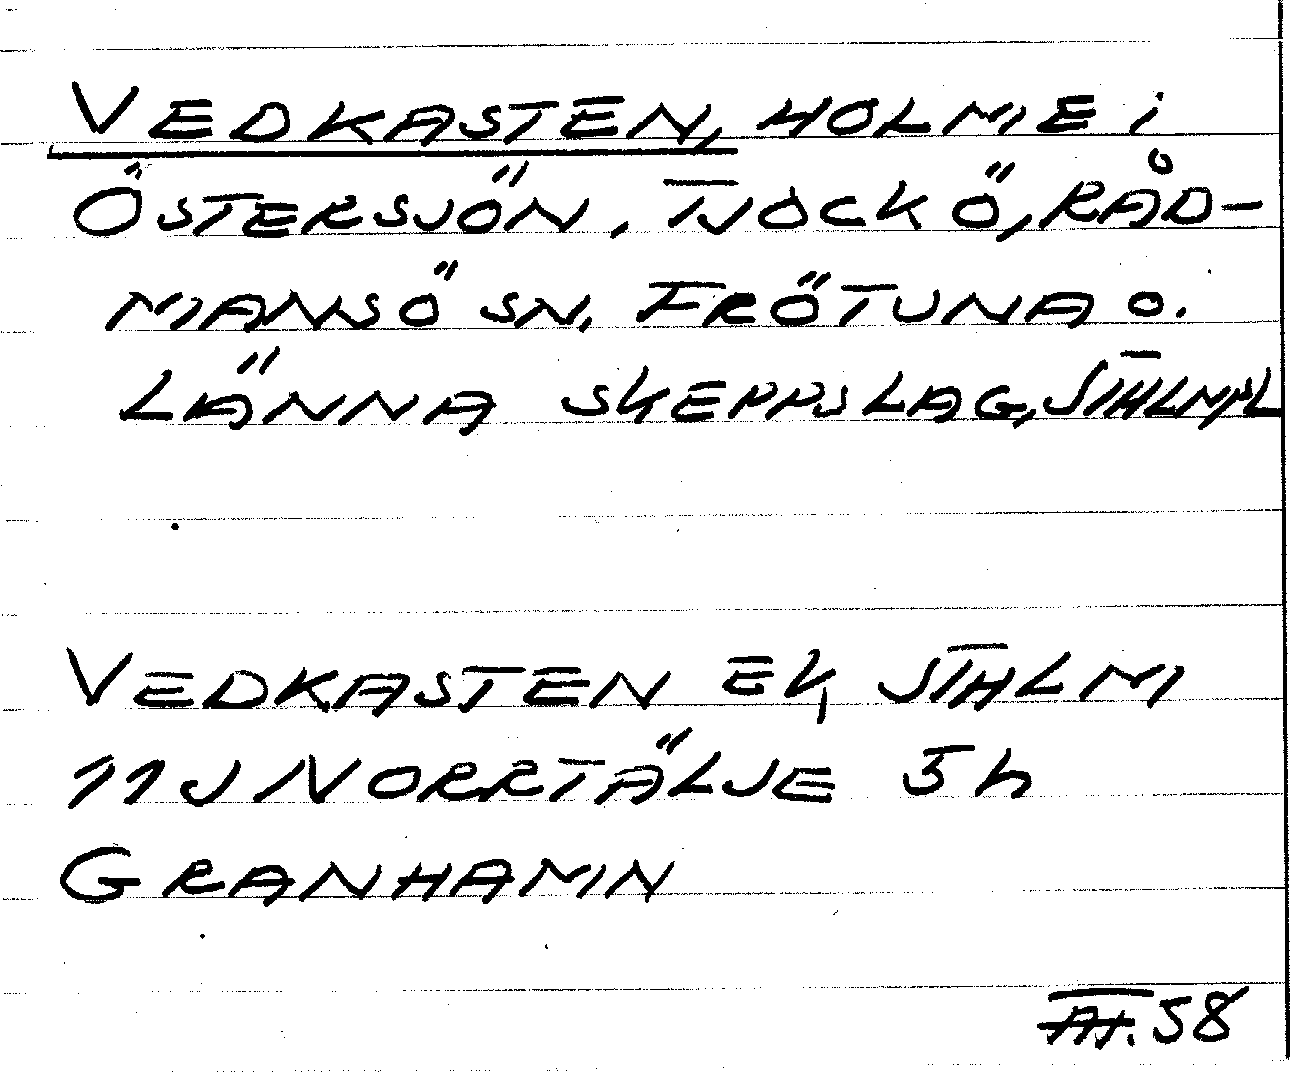 VEDKASTEN, HOLME i
ÖSTERSJÖN, TJOCKÖ, RÅD-
MANSÖ SN, FRÖTUNA O.
LÄNNA SKEPPSLAG, STHLMS L
VEDKASTEN EK, STHLM
11J NORRTÄLJE 5h
GRANHAMN
58